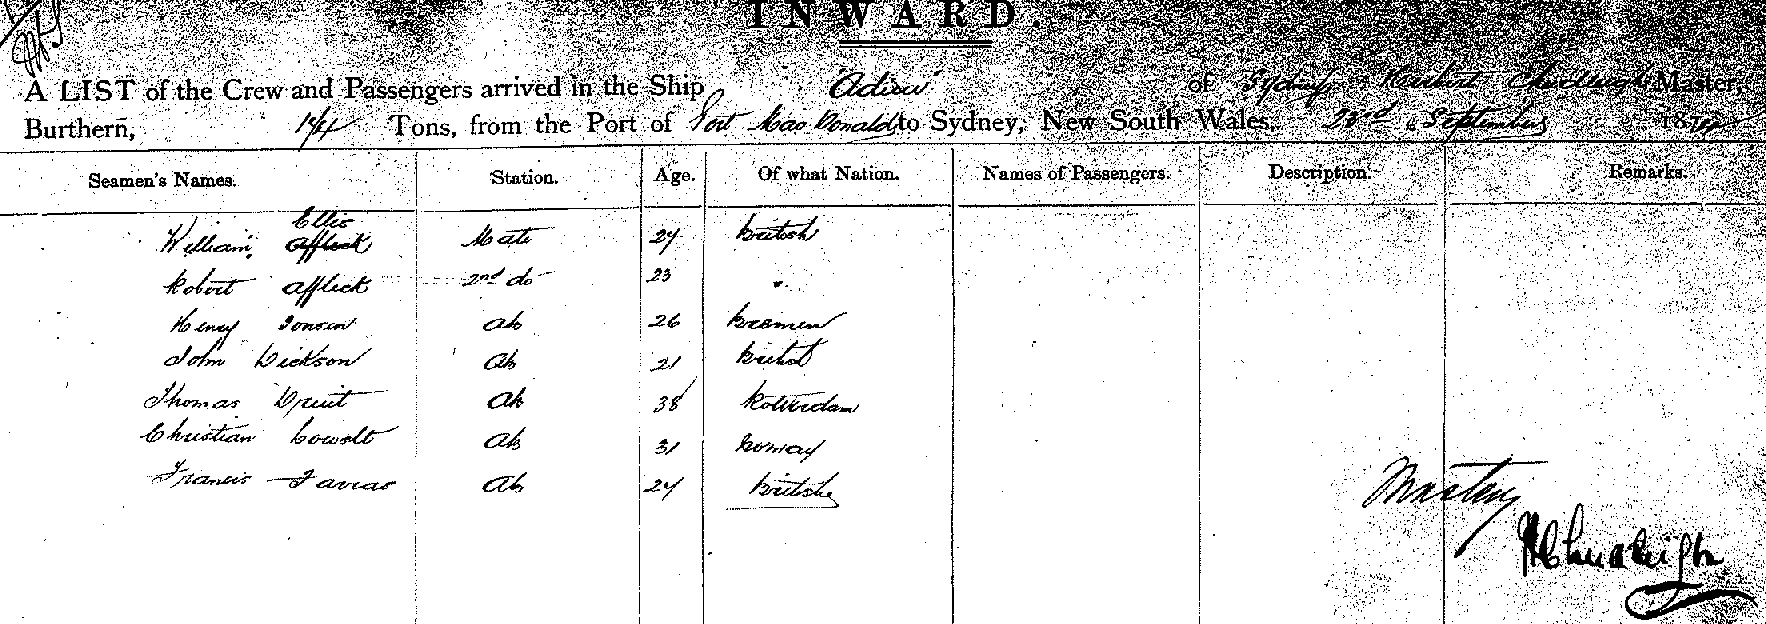 INWARD.
A LIST of the Crew and Passengers arrived in the Ship "Adieu" of Sydney, Herbert Chudleigh Master,
Burthern, Tons, from the Port of Port Mac Donald to Sydney, New South Wales, 23rd September 187
Seamen's Names. Station. Age. Of what Nation. Names of Passengers. Description. Remarks.
Ellis
William, Affleck Mate 27 British
Robert Affleck 2nd do 23 "
Henry Jonson ab 26 Bremen
John Dickson ab 21 British
Thomas ab 38 Rotterdam
Christian ab 31 Norway
Francis ab 24 British
Master
H Chudleigh